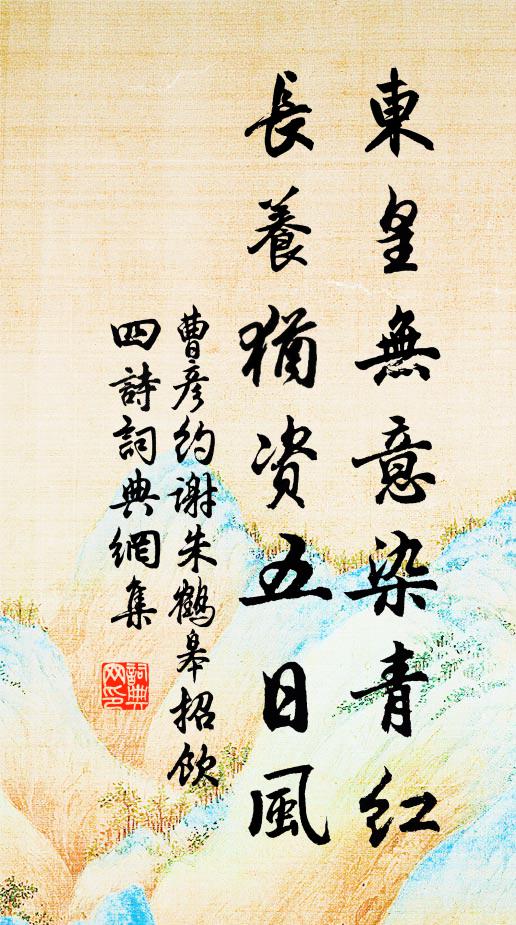 東皇無意染青紅
長養猶資五日風
曹彦約谢朱鶴皋招飲
四詩詞典網集
詞典网印